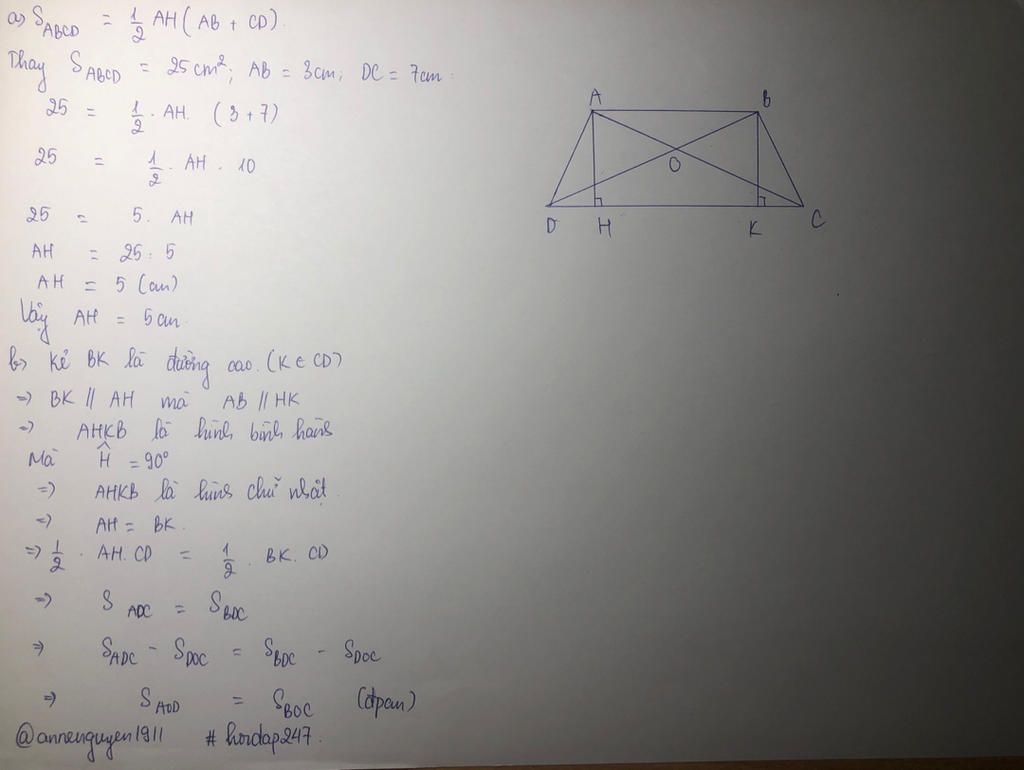 a) S_ABCD = 1/2 AH (AB + CD).
Thay S_ABCD = 25cm²; AB = 3cm; DC = 7cm.
25 = 1/2 . AH. (3 + 7)
25 = 1/2 . AH . 10
25 = 5. AH
AH = 25 : 5
AH = 5 (cm)
Vậy AH = 5cm.
b) Kẻ BK là đường cao. (K ∈ CD)
=> BK // AH mà AB // HK
=> AHKB là hình bình hành
Mà Ĥ = 90°
=> AHKB là hình chữ nhật.
=> AH = BK.
=> 1/2 . AH. CD = 1/2 . BK. CD
=> S_ADC = S_BDC
=> S_ADC - S_DOC = S_BDC - S_DOC
=> S_AOD = S_BOC (đpcm)
@annenguyen1911 # hoidap247.
A B
O
D H K C